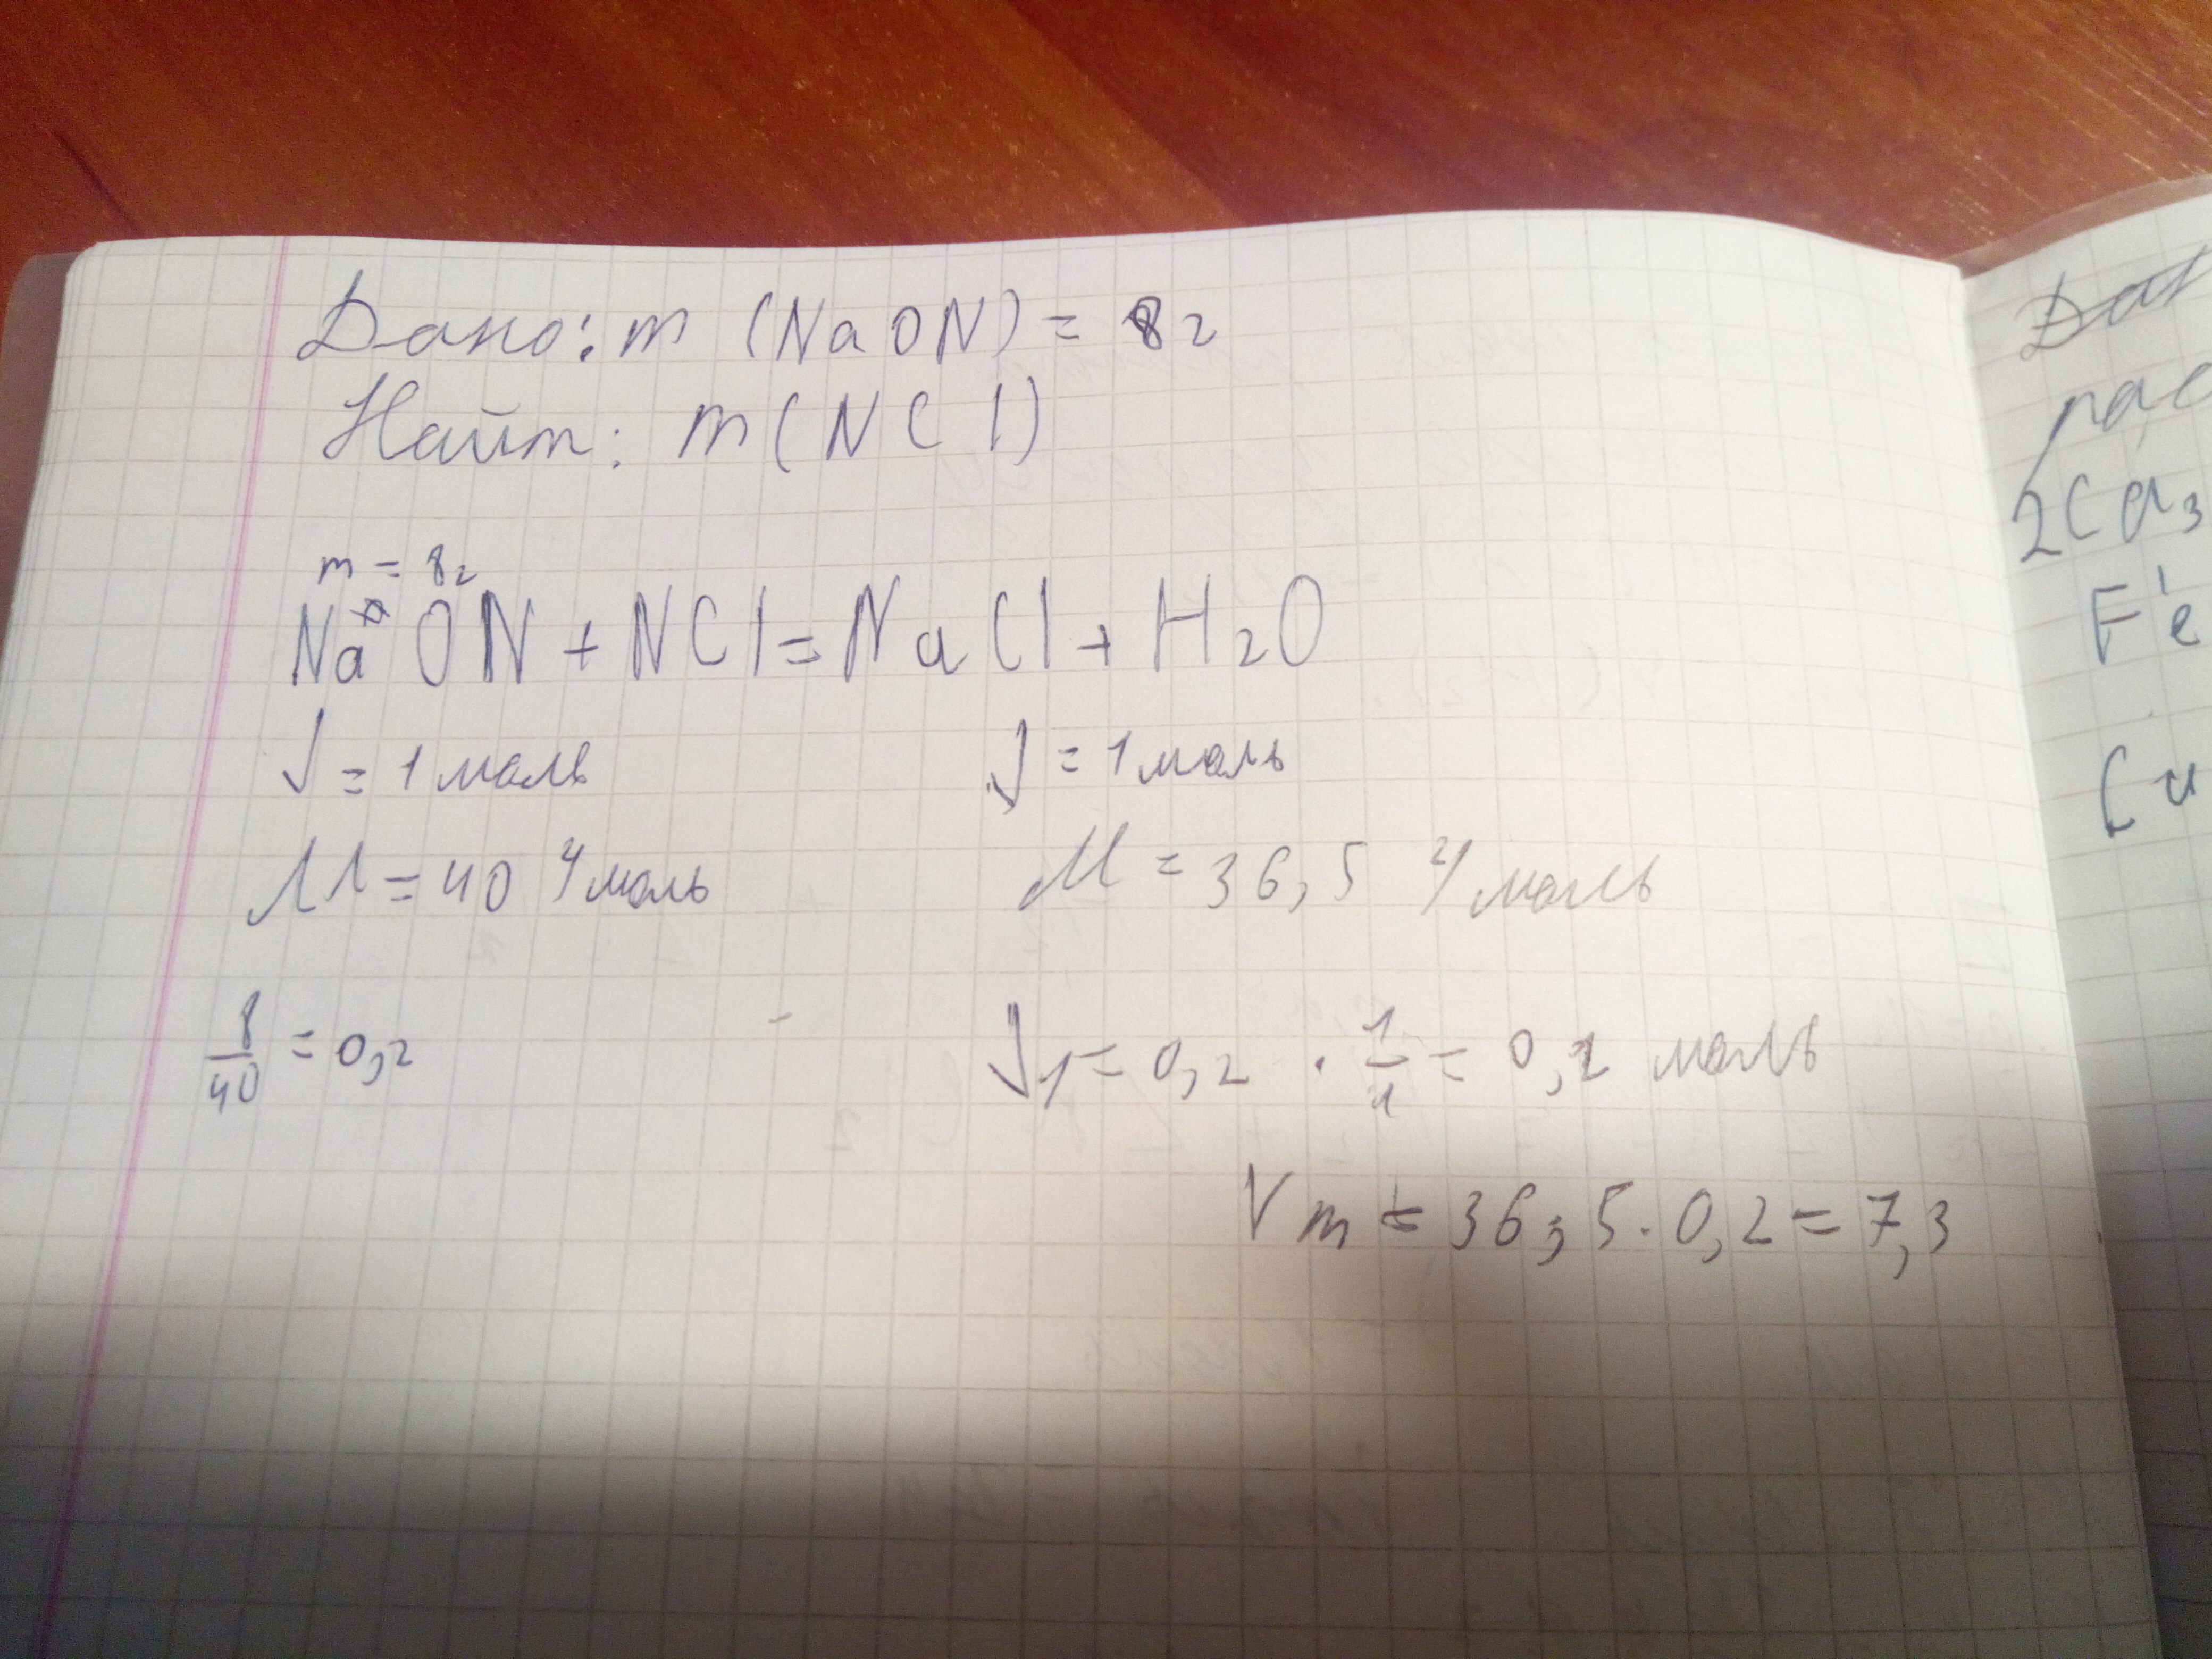 Дано: m (NaON) = 8г
Найт: m(NCl)
m = 8г
NaON + NCl = NaCl + H₂O
√ = 1 моль √ = 1 моль
M = 40 г/моль M = 36,5 г/моль
8/40 = 0,2 √₁ = 0,2 · 1/1 = 0,2 моль
√ m = 36,5 · 0,2 = 7,3
2Ca₃
Fe
Cu